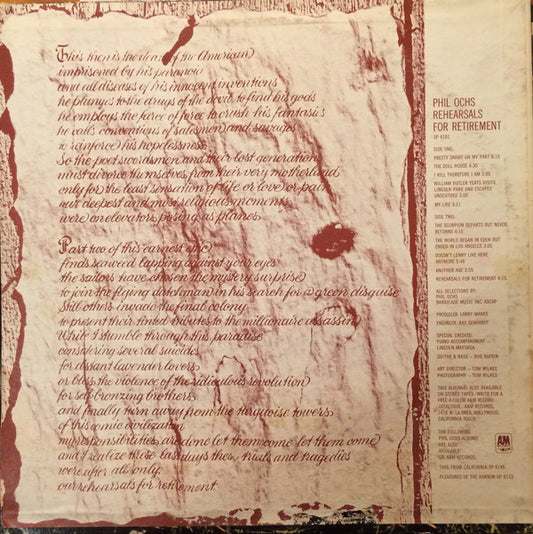 This then is the death of the American
imprisoned by his paranoia
and all diseases of his innocent inventions
he plunges to the drugs of the devil to find his gods
he employs the farce of force to crush his fantasies
he calls conventions of salesmen and savages
to reinforce his hopelessness
So the poet swordsmen and their lost generation
must divorce themselves from their very motherland
only for the least sensation of life or love or pain
our deepest and most religious moments
were on elevators posing as planes.
Part two of this earnest epic
finds seaweed lapping against your eyes
the sailors have chosen the mystery surprise
to join the flying dutchman in his search for a green disguise
Still others invade the final colony
to present their tinted tributes to the millionaire assassin
While I stumble through this paradise
considering several suicides
for distant lavender lovers
or bless the violence of the ridiculous revolution
for self bronzing brothers
and finally turn away from the turquoise towers
of this comic civilization
my responsibilities are done let them come let them come
and I realize these last days these trials and tragedies
were after all only
our rehearsals for retirement.
PHIL OCHS
REHEARSALS
FOR RETIREMENT
SP 4181
SIDE ONE:
PRETTY SMART ON MY PART 3:15
THE DOLL HOUSE 4:35
I KILL THEREFORE I AM 2:55
WILLIAM BUTLER YEATS VISITS
LINCOLN PARK AND ESCAPES
UNSCATHED 3:00
MY LIFE 3:11
SIDE TWO:
THE SCORPION DEPARTS BUT NEVER
RETURNS 4:15
THE WORLD BEGAN IN EDEN BUT
ENDED IN LOS ANGELES 3:05
DOESN'T LENNY LIVE HERE
ANYMORE 5:48
ANOTHER AGE 3:35
REHEARSALS FOR RETIREMENT 4:15
ALL SELECTIONS BY:
PHIL OCHS
BARRICADE MUSIC INC. ASCAP
PRODUCER: LARRY MARKS
ENGINEER: RAY GERHARDT
SPECIAL CREDITS:
PIANO ACCOMPANIMENT —
LINCOLN MAYORGA
GUITAR & BASS — BOB RAFKIN
ART DIRECTOR — TOM WILKES
PHOTOGRAPHY — TOM WILKES
THIS ALBUM IS ALSO AVAILABLE
ON STEREO TAPES. WRITE FOR A
FREE 4-COLOR A&M RECORD
CATALOGUE. A&M RECORDS,
1416 N. LA BREA, HOLLYWOOD,
CALIFORNIA 90028
THE FOLLOWING
PHIL OCHS ALBUMS
ARE ALSO
AVAILABLE
ON A&M RECORDS:
A&M
TAPE FROM CALIFORNIA SP 4148
PLEASURES OF THE HARBOR SP 4133